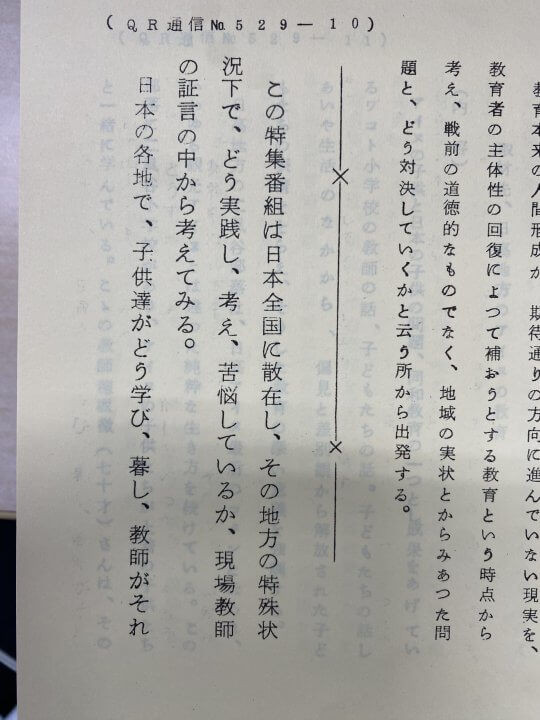 (QR通信№529－10)
教育本来の人間形成が、期待通りの方向に進んでいない現実を、
教育者の主体性の回復によつて補おうとする教育という時点から
考え、戦前の道徳的なものでなく、地域の実状とからみあつた問
題と、どう対決していくかと云う所から出発する。
この特集番組は日本全国に散在し、その地方の特殊状
況下で、どう実践し、考え、苦悩しているか、現場教師
の証言の中から考えてみる。
日本の各地で、子供達がどう学び、暮し、教師がそれ